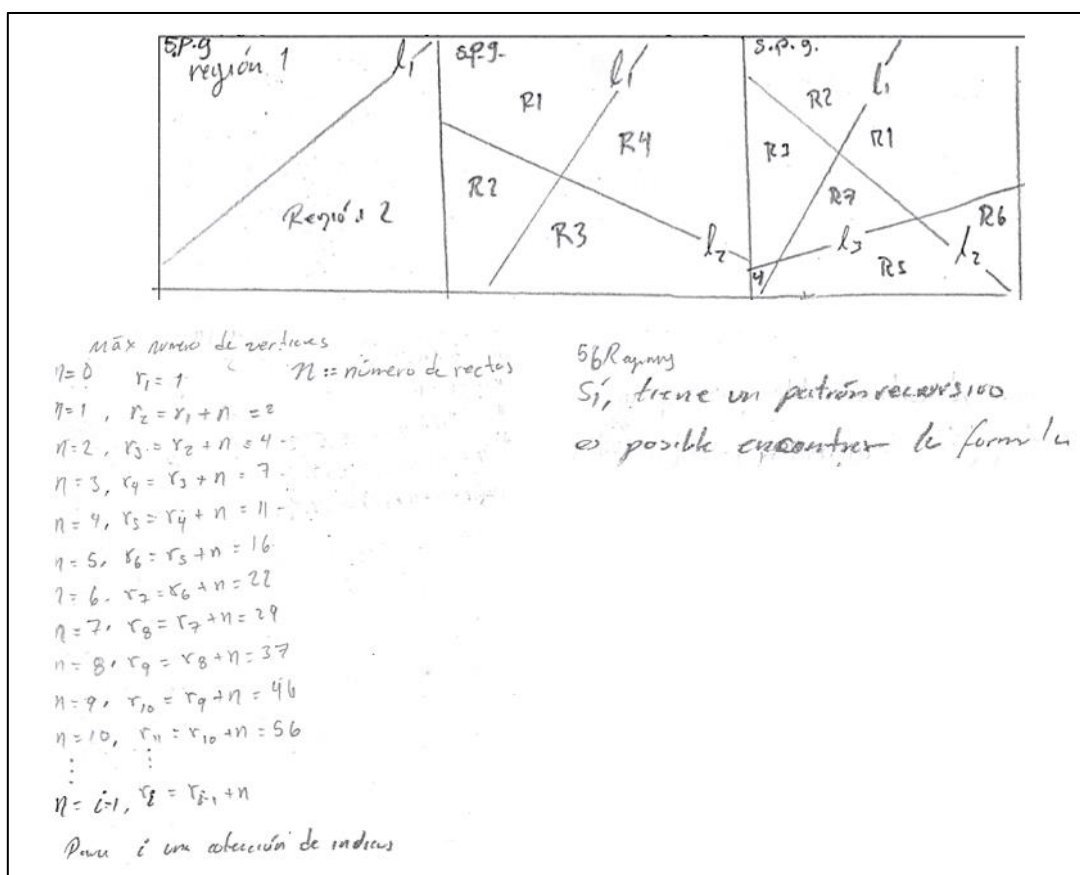 S.P.g
región 1
l₁
Región 2
s.p.g.
l₁
R1
R4
R2
R3
l₂
s.p.g.
l₁
R2
R1
R3
R7
R6
l₃
l₂
4
R5
máx número de vertices
n=0 r₁=1 n := número de rectas
n=1, r₂=r₁+n=2
n=2, r₃=r₂+n=4
n=3, r₄=r₃+n=7
n=4, r₅=r₄+n=11
n=5, r₆=r₅+n=16
n=6, r₇=r₆+n=22
n=7, r₈=r₇+n=29
n=8, r₉=r₈+n=37
n=9, r₁₀=r₉+n=46
n=10, r₁₁=r₁₀+n=56
⋮ ⋮
n=i-1, rᵢ=rᵢ₋₁+n
Para i una colección de indices
56
Sí, tiene un patrón recursivo
es posible encontrar la formula